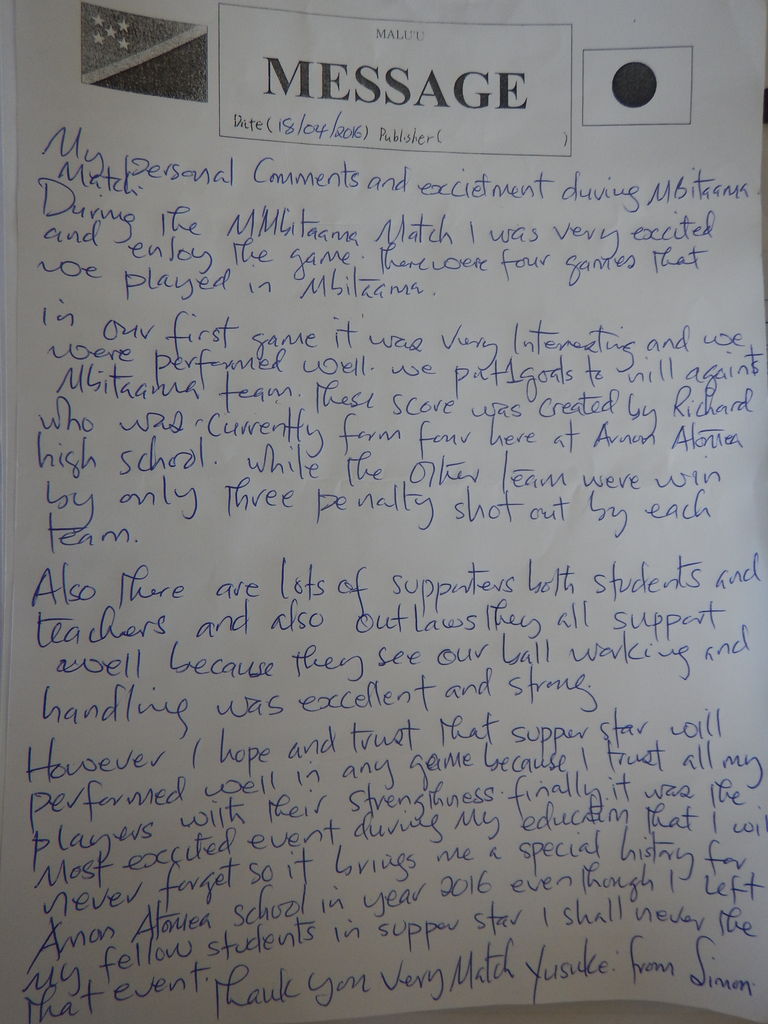 MALU'U
MESSAGE
Date (18/04/2016) Publisher ( )
My personal Comments and exccietment during Mbitaama
Match.
During the MMbitaama Match I was very excited
and enjoy the game. There were four games that
we played in Mbitaama.
in our first game it was very Interesting and we
were performed well. we put 1 goals to nill againts
Mbitaama team. These score was created by Richard
who was currently form four here at Arnon Atomea
high school. while the other team were win
by only three penalty shot out by each
team.
Also there are lots of supporters both students and
teachers and also outlaws they all support
well because they see our ball working and
handling was excellent and strong.
However I hope and trust that supper star will
performed well in any game because I trust all my
players with their strengthness. finally it was the
Most excited event during My education that I wil
never forget so it brings me a special history for
Arnon Atomea school in year 2016 even though I Left
My fellow students in supper star I shall never the
that event. Thank you Very Match Yusuke. from Simon.